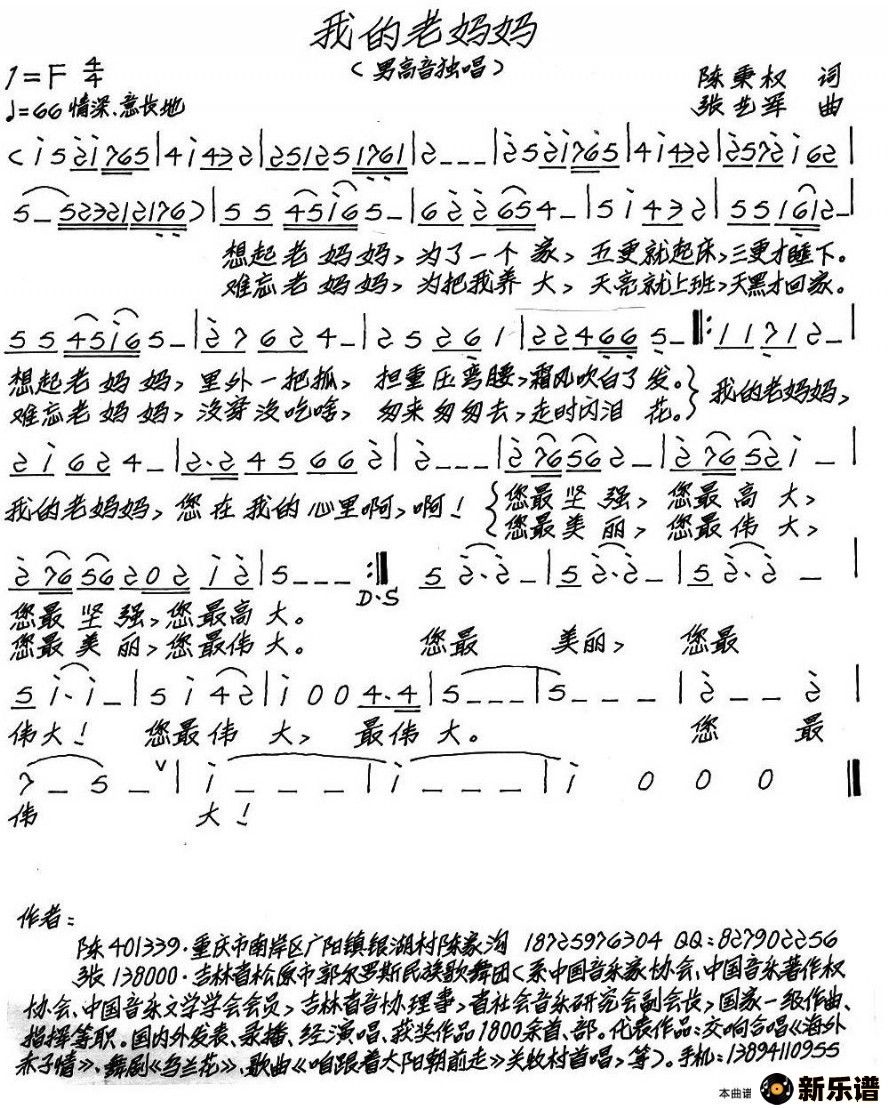 我的老妈妈
（男高音独唱）
1=F 4/4
陈秉权 词
♩=66 情深、意长地
张艺军 曲
想起老妈妈，为了一个家，五更就起床，三更才睡下。
难忘老妈妈，为把我养大，天亮就上班，天黑才回家。
想起老妈妈，里外一把抓，担重压弯腰，霜风吹白了发。
难忘老妈妈，没穿没吃啥，匆来匆匆去，走时闪泪花。
我的老妈妈，
我的老妈妈，您在我的心里啊，啊！
您最坚强，您最高大，
您最美丽，您最伟大，
D.S
您最坚强，您最高大。
您最美丽，您最伟大。 您最美丽，您最
伟大！ 您最伟大，最伟大。 您最
伟大！
作者：
陈401339·重庆市南岸区广阳镇银湖村陈家沟 18725976304 QQ：827902256
张138000·吉林省松原市郭尔罗斯民族歌舞团（系中国音乐家协会、中国音乐著作权
协会、中国音乐文学学会会员，吉林省音协理事，省社会音乐研究会副会长，国家一级作曲、
指挥等职。国内外发表、录播、经演唱、获奖作品1800余首、部。代表作品：交响合唱《海外
赤子情》、舞剧《乌兰花》、歌曲《咱跟着太阳朝前走》关牧村首唱，等）。手机：13894110955
本曲谱
新乐谱